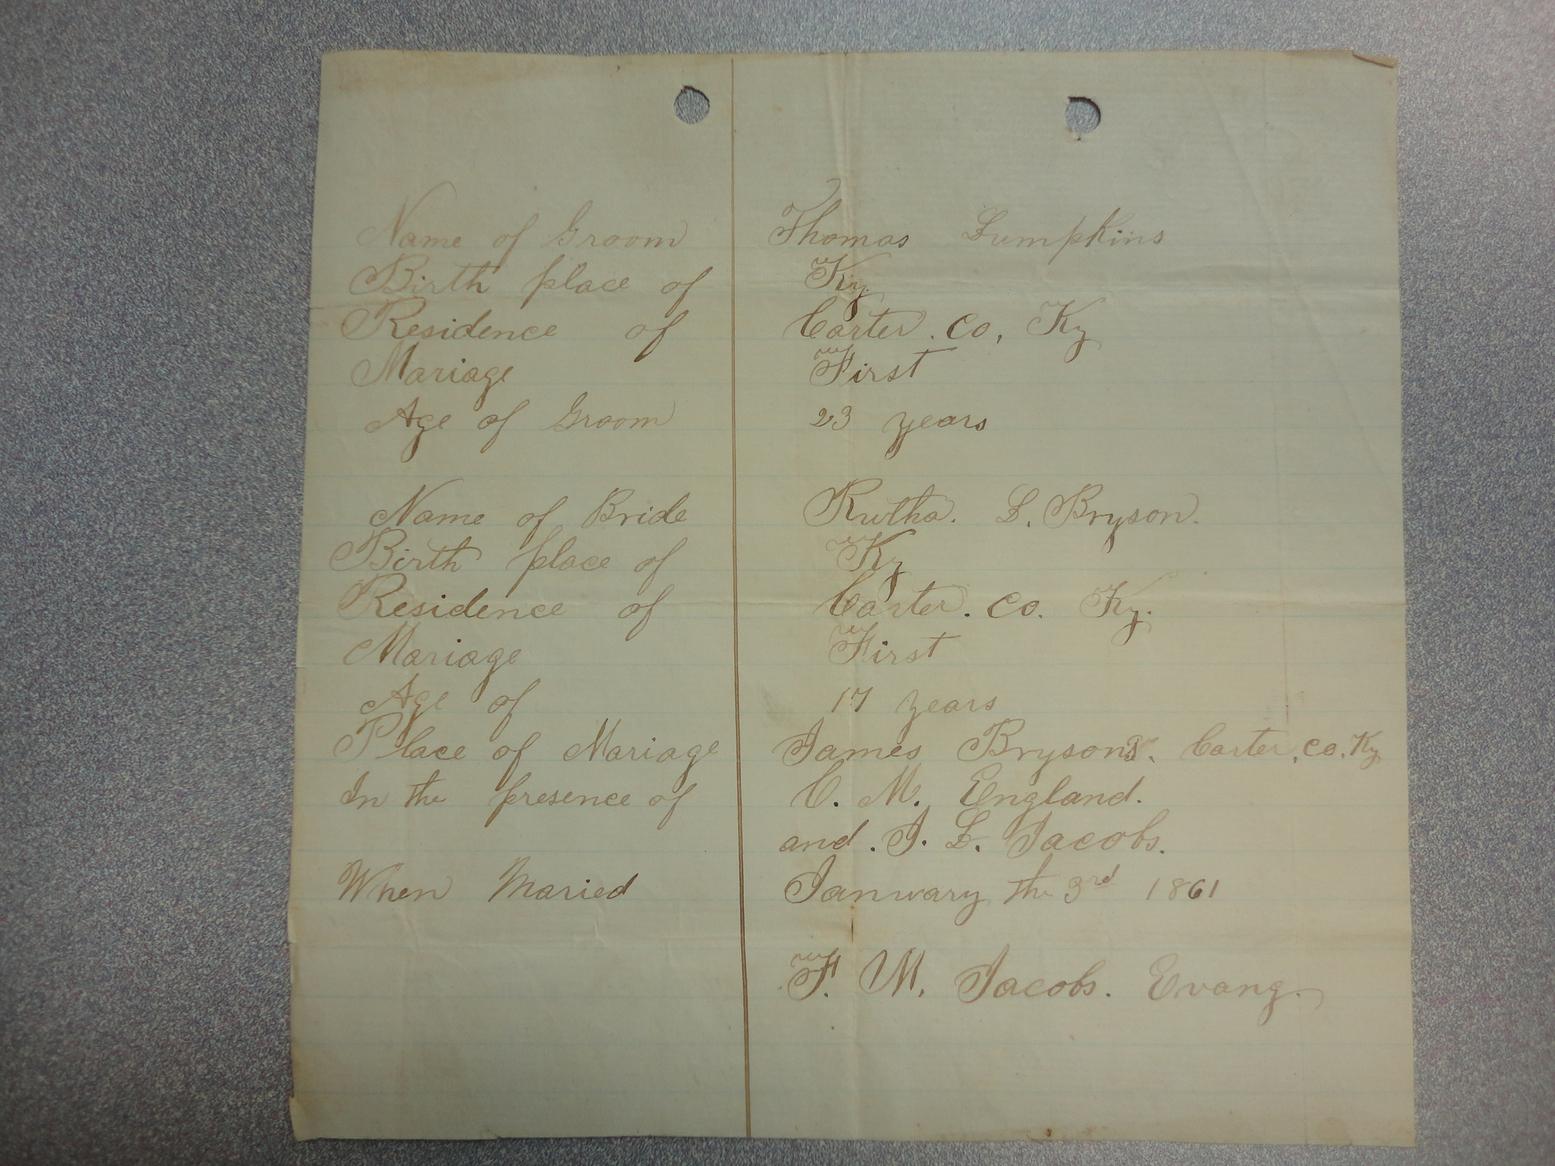 Name of Groom Thomas Lumpkins
Birth place of Ky
Residence of Carter. Co, Ky
Mariage First
Age of Groom 23 years
Name of Bride Rutha. L. Bryson.
Birth place of Ky
Residence of Carter. Co. Ky.
Mariage First
Age of 17 years
Place of Mariage James Bryson's. Carter, Co. Ky
In the presence of C. M. England.
and. J. L. Jacobs.
When Maried January the 3rd 1861
F. M. Jacobs. Evang.